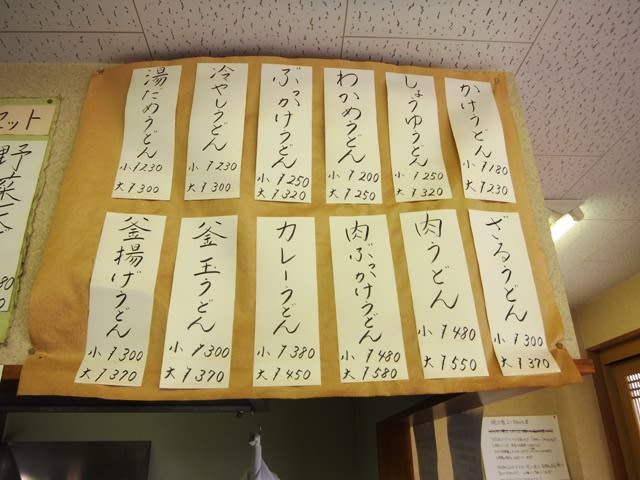 かけうどん
小 ¥180
大 ¥230
しょうゆうどん
小 ¥250
大 ¥320
わかめうどん
小 ¥200
大 ¥250
ぶっかけうどん
小 ¥250
大 ¥320
冷やしうどん
小 ¥230
大 ¥300
湯だめうどん
小 ¥230
大 ¥300
ざるうどん
小 ¥300
大 ¥370
肉うどん
小 ¥480
大 ¥550
肉ぶっかけうどん
小 ¥480
大 ¥580
カレーうどん
小 ¥380
大 ¥450
釜玉うどん
小 ¥300
大 ¥370
釜揚げうどん
小 ¥300
大 ¥370
ット
野菜